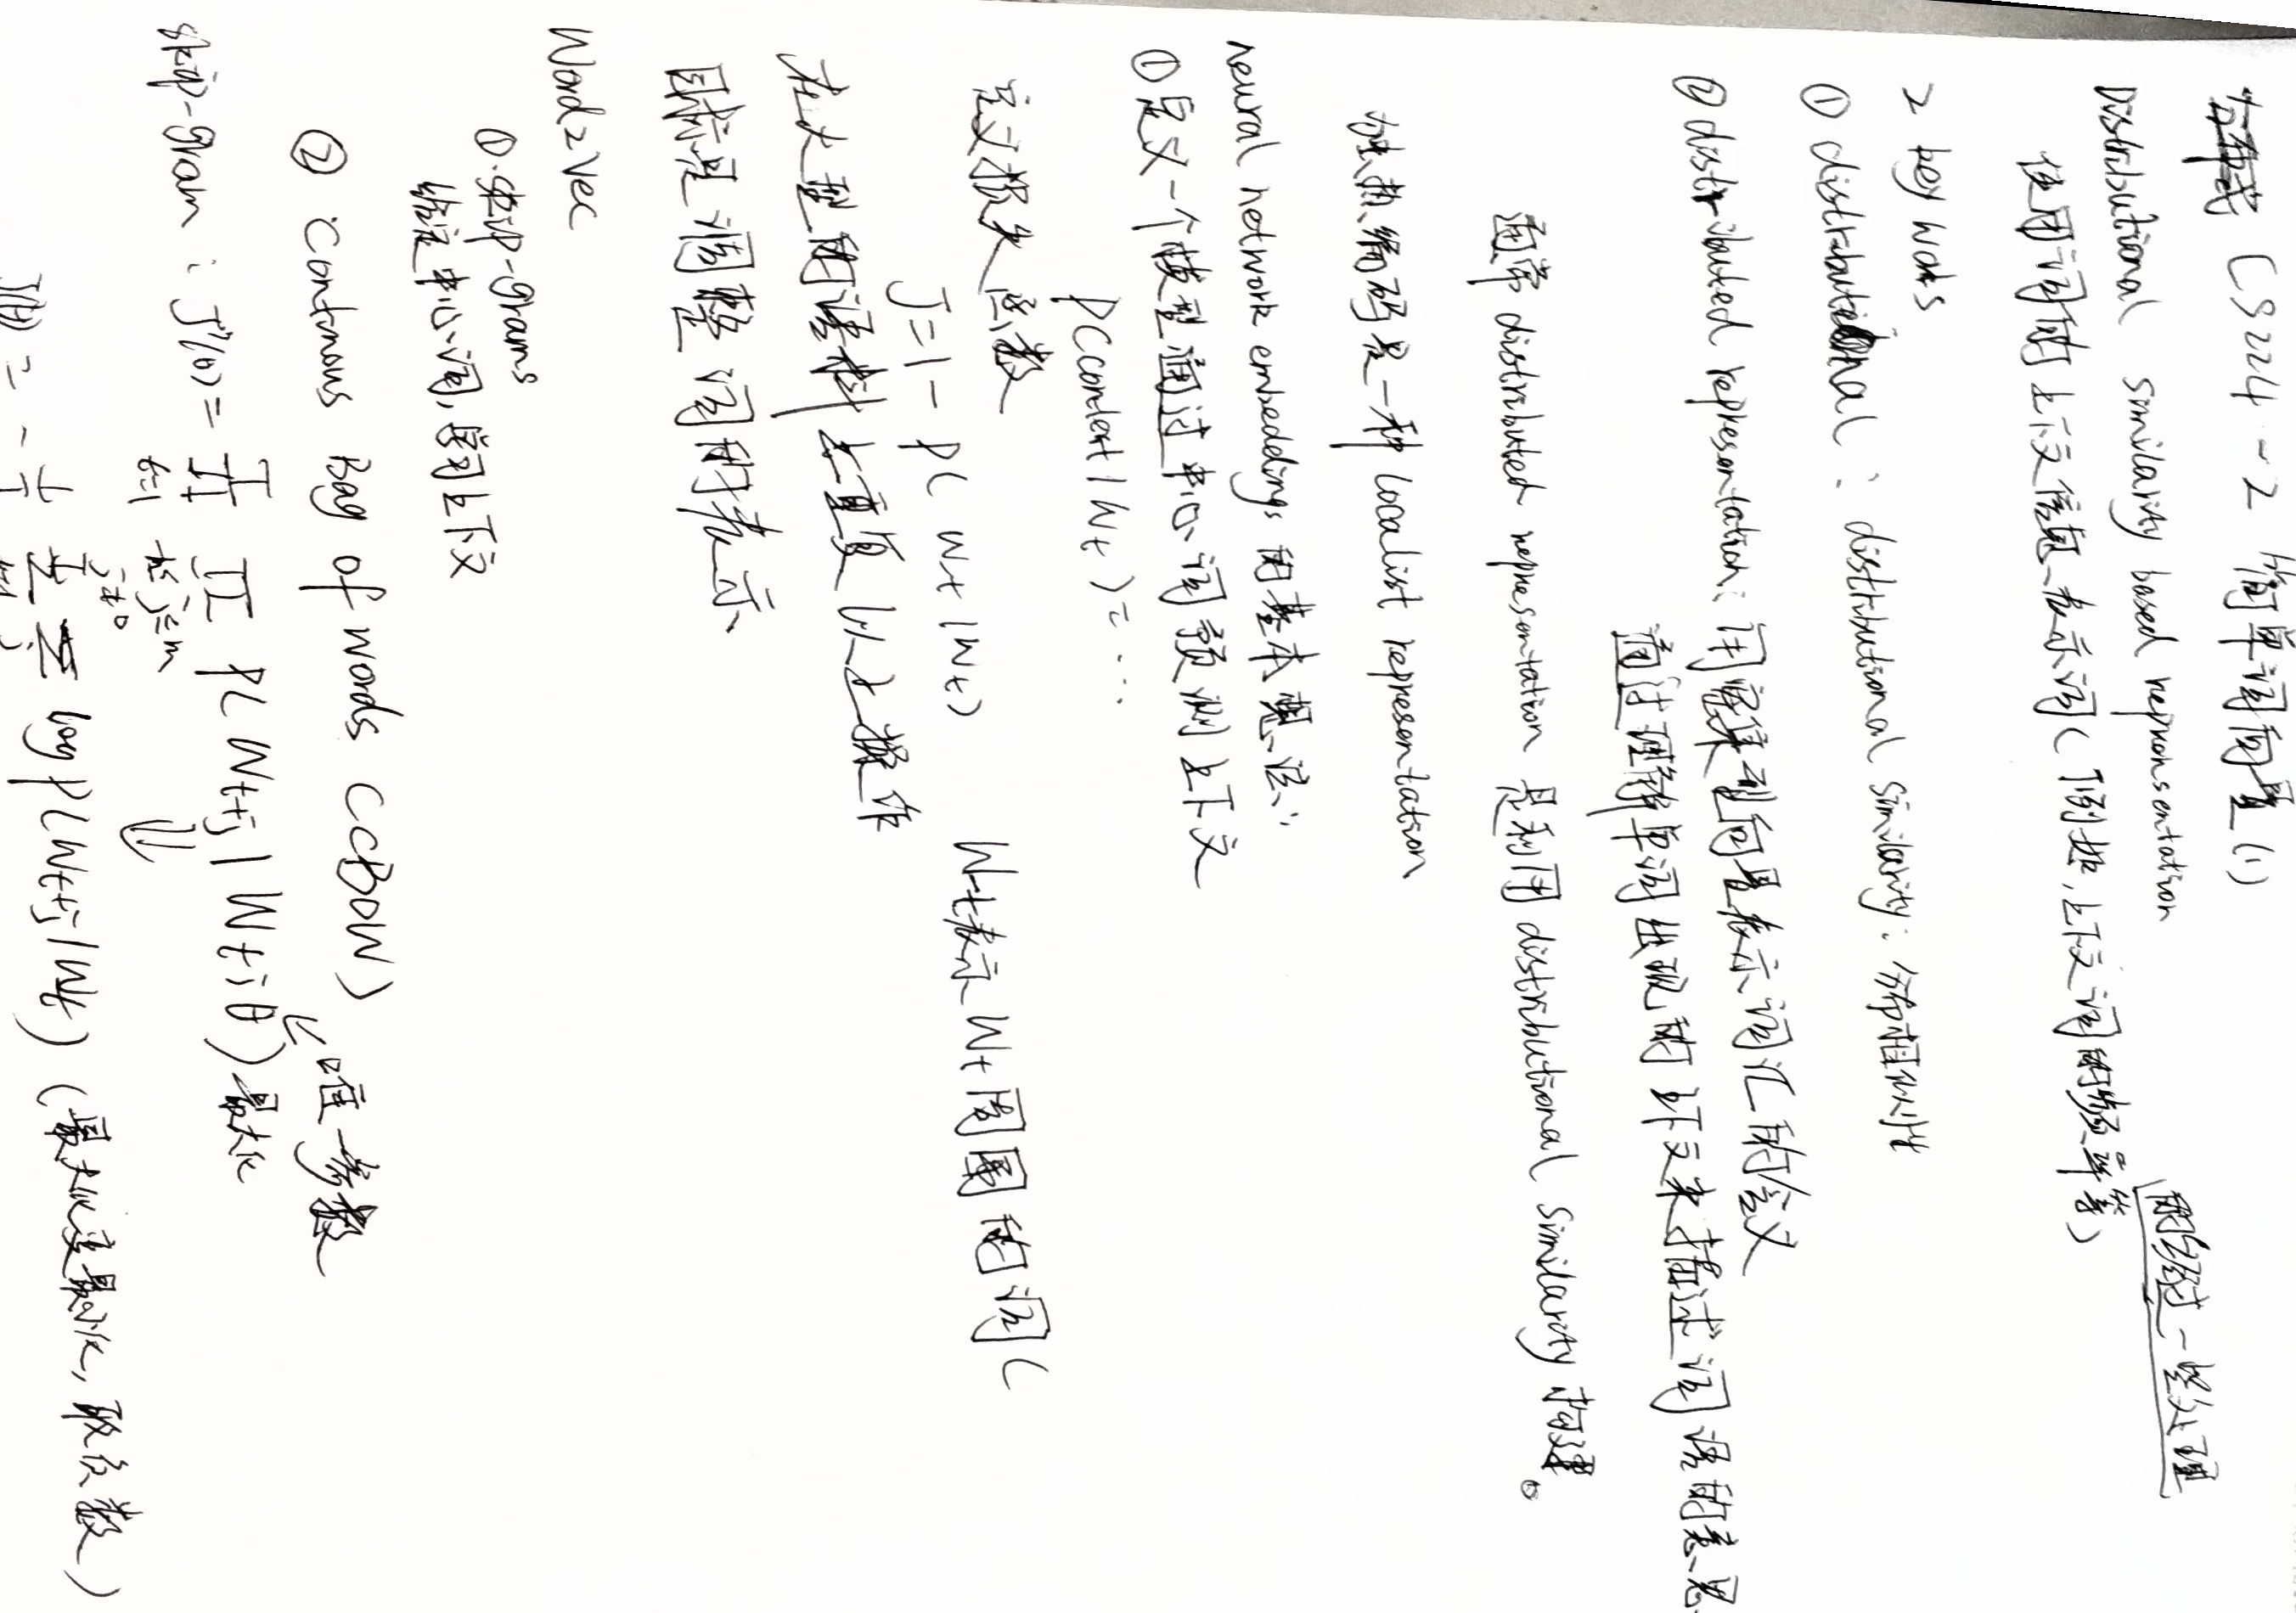 CS224-2 简单词向量(1)
Distributional similarity based reprensentation
使用词的上下文信息表示词(例如,上下文词的 等等)
都经过一些处理
2 key words
① distributional : distributional similarity: 分布相似性
② distributed representation: 用密集型向量表示词汇的含义
通过理解单词出现的上下文来描述词语的意思
通常 distributed representation 是利用 distributional similarity 构建。
独热编码是一种 localist representation
neural network embeddings 的基本想法:
① 定义一个模型通过中心词预测上下文
P(context|Wt)=...
定义损失函数
J=1-P(W-t|Wt) W-t表示Wt周围的词(
在大型的语料上重复以上操作
目标是调整词的表示
Word2Vec
①.skip-grams
给定中心词,预测上下文
② Continous Bag of words (CBOW)
唯一参数
skip-gram : J'(θ)= T∏t=1 ∏-m≤j≤m j≠0 P(Wt+j|Wt;θ) 最大化
⇓
J(θ) = -1/T Σ Σ log P(Wt+j|Wt) (最大化变最小化,取负数)